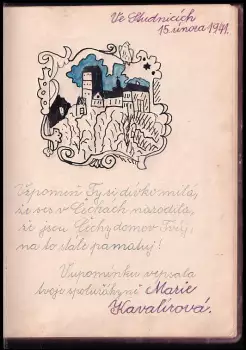 Ve Studnicích
15. února 1941.
Vzpomeň Ty si dívko milá,
že ses v Čechách narodila,
že jsou Čechy domov Tvůj,
na to stále pamatuj!
V upomínku vepsala
tvoje spolužákyně Marie
Kavalírová.